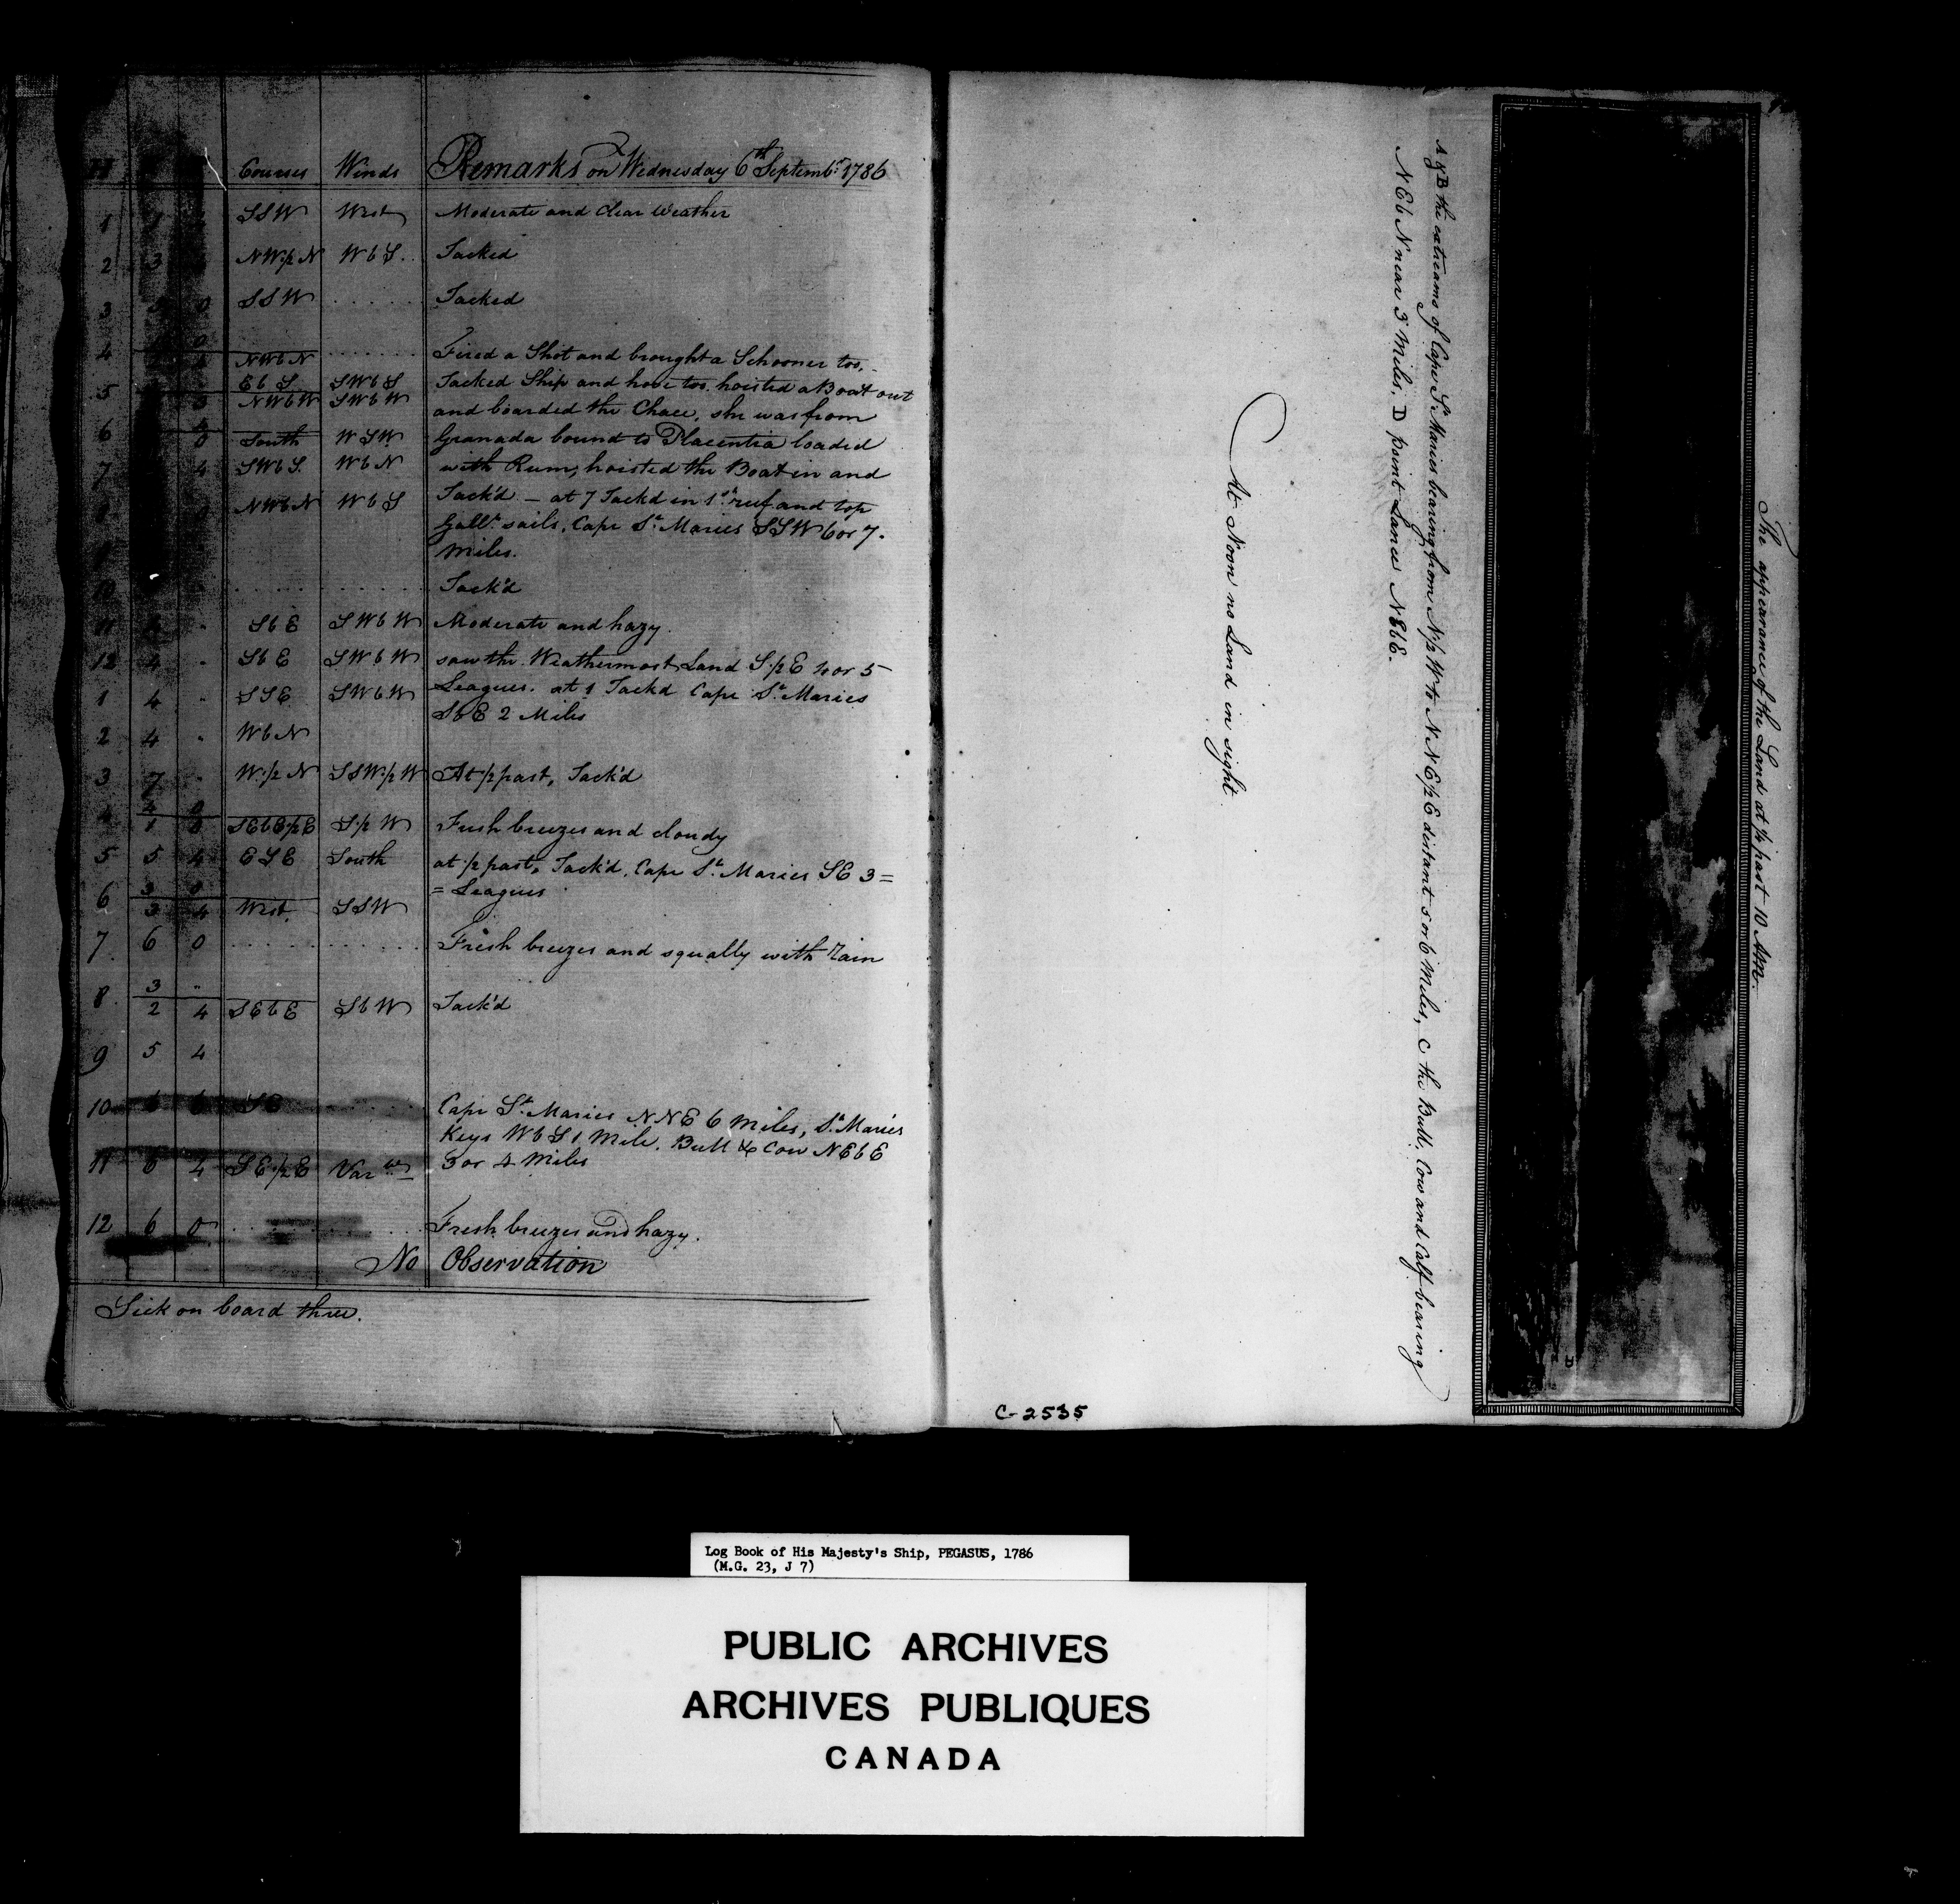 H Courses Winds Remarks on Wednesday 6th Septembr. 1786
1 SSW West Moderate and Clear Weather
2 3 NW½N WbS. Tacked
3 0 SSW . . . . . Tacked
4 0
NWbN . . . . . . Fired a Shot and brought a Schooner too,
EbS SWbS Tacked Ship and hove too, hoisted a Boat out
5 3 NWbW SWbW and boarded the Chace, she was from
6 0 South WSW Granada bound to Placentia loaded
7 4 SWbS. WbN with Rum, hoisted the Boat in and
NWbN WbS Tack'd - at 7 Tackd in 1st. reef and top
Gallt. sails. Cape St. Maries SSW 6 or 7.
Miles.
10 . . . . . . . . . . . Tack'd
11 SbE SWbW Moderate and hazy.
12 4 . SbE SWbW saw the Weathermost Land S.½E 4 or 5
1 4 . SSE SWbW Leagues. at 1 Tackd Cape St. Maries
SbE 2 Miles
2 4 . WbN
3 7 . W.½N SSW.½W At ½ past, Tack'd
4 4 0
1 0 SEbE½E S.½W Fresh breezes and cloudy
5 5 4 ESE South at ½ past, Tack'd. Cape St. Maries SE 3=
= Leagues
6 3 0
3 4 West. SSW
7 6 0 . . . . . . . . . . Fresh breezes and squally with rain
8 3 ..
2 4 SEbE SbW Tack'd
9 5 4
10 6 6 SE . . . . Cape St. Maries NNE 6 Miles, St. Maries
Keys WbS 1 Mile. Bull & Cow NEbE
11 6 4 SE.½E Varble 3 or 4 Miles
12 6 0 . . . . . . . . Fresh breezes and hazy.
No Observation
Sick on board three.
The appearance of the Land at ¼ past 10 AM.
A & B the extreams of Cape St. Maries bearing from N½W to NNE½E distant 5 or 6 Miles, C the Bull, Cow and Calf bearing
NEbN near 3 Miles. D point Lance NEbE.
At Noon no Land in sight
C-2535
Log Book of His Majesty's Ship, PEGASUS, 1786
(M.G. 23, J 7)
PUBLIC ARCHIVES
ARCHIVES PUBLIQUES
CANADA